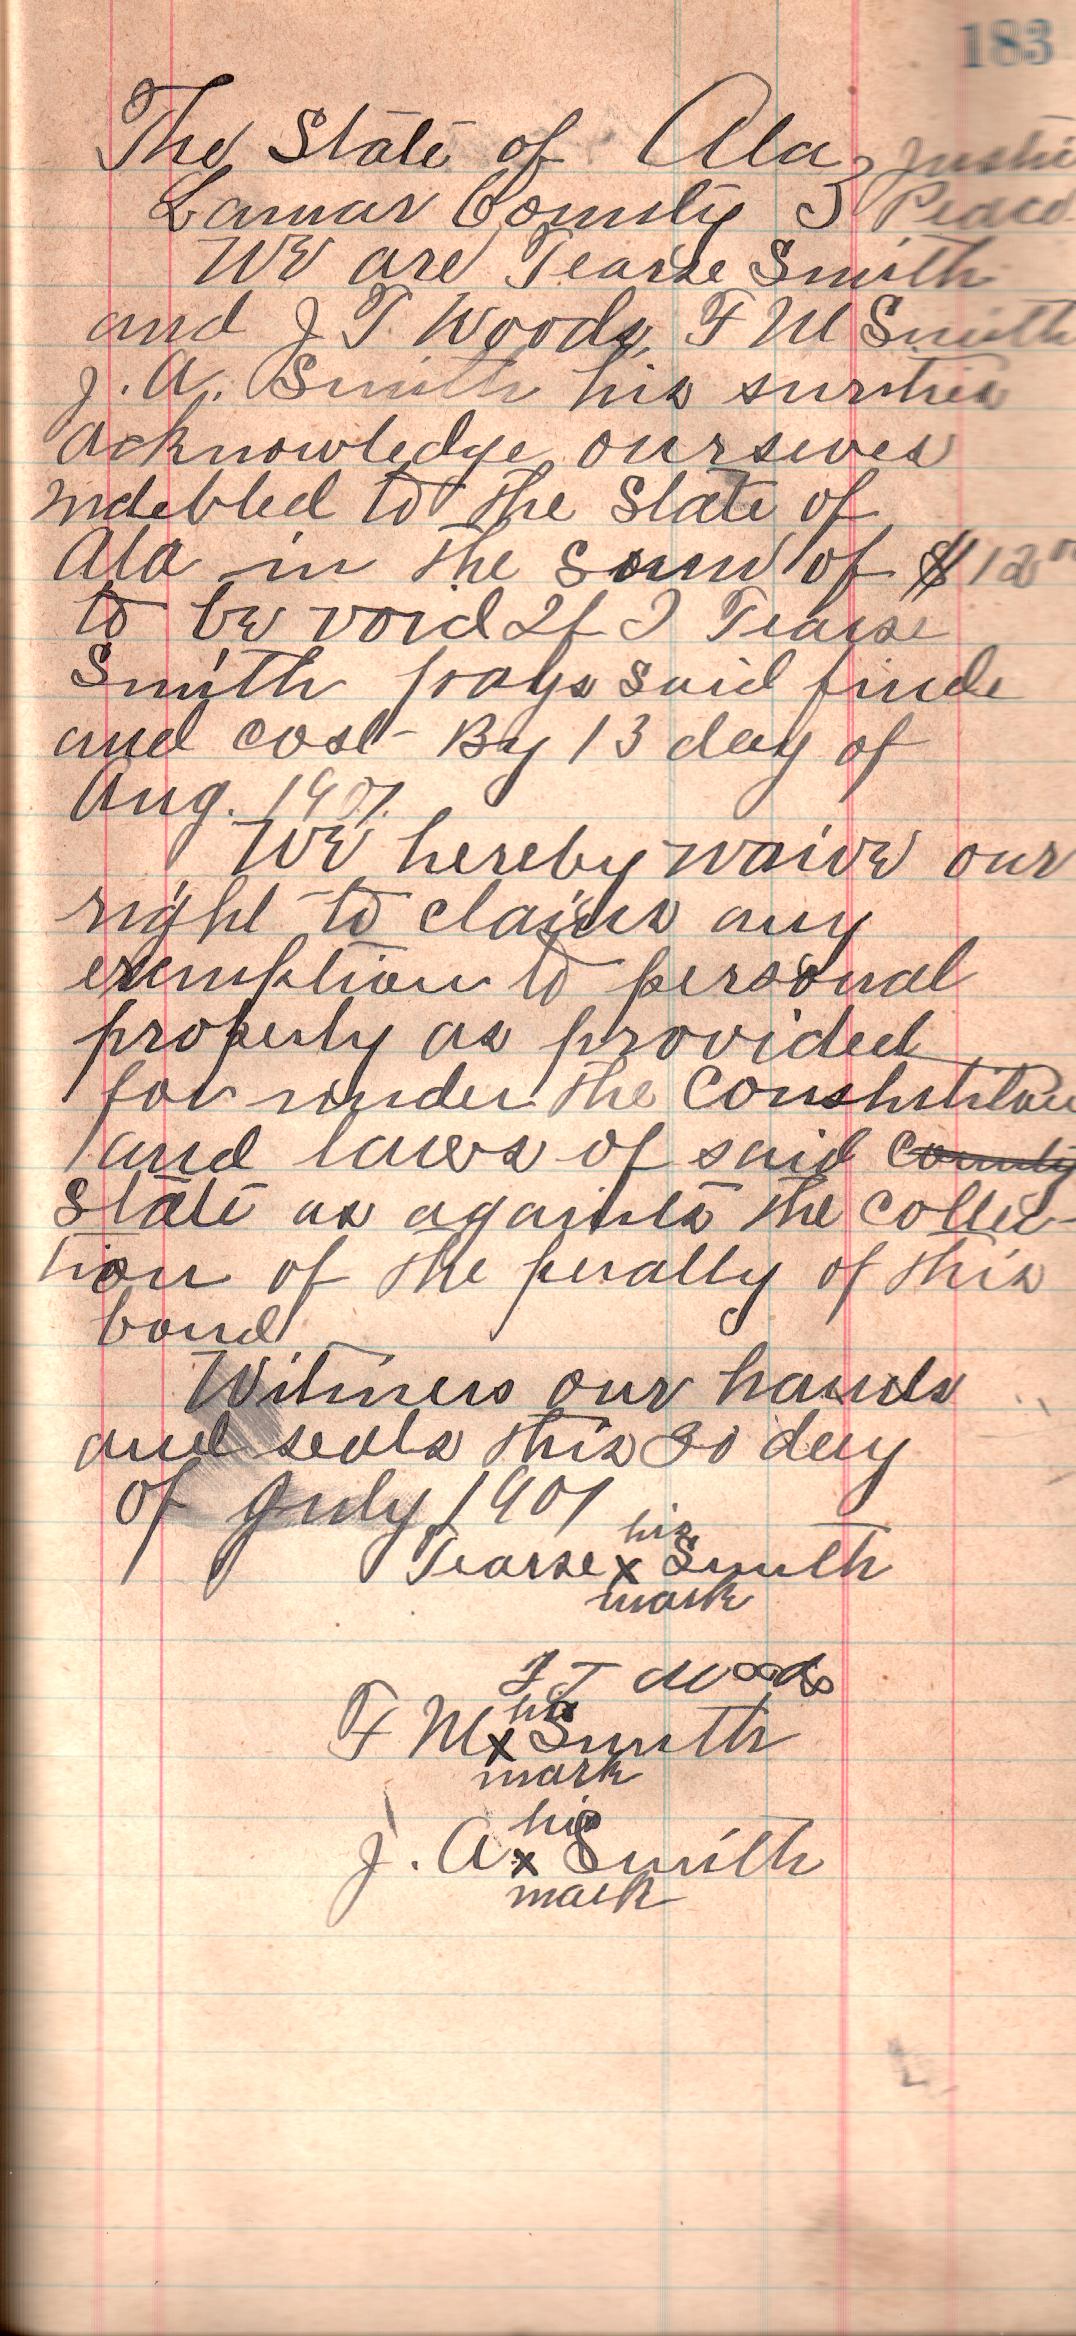 183
The State of Ala } Justi
Lamar County } Peace
We are Tearse Smith
and J T Woods, F M Smith
J. A. Smith his surties
acknowledge ourseves
indebted to the State of
Ala in the sum of $12
to be void If I Tearse
Smith pays said finde
and cost - By 13 day of
Aug. 1901
We hereby waive our
right to claim any
exemption to personal
property as provided
for under the Constitution
and laws of said County
State as against the collec-
tion of the penalty of this
bond
Witness our hands
and seals this 30 day
of July 1901
his
Tearse x Smith
mark
J T Woods
his
F M x Smith
mark
his
J. A. x Smith
mark